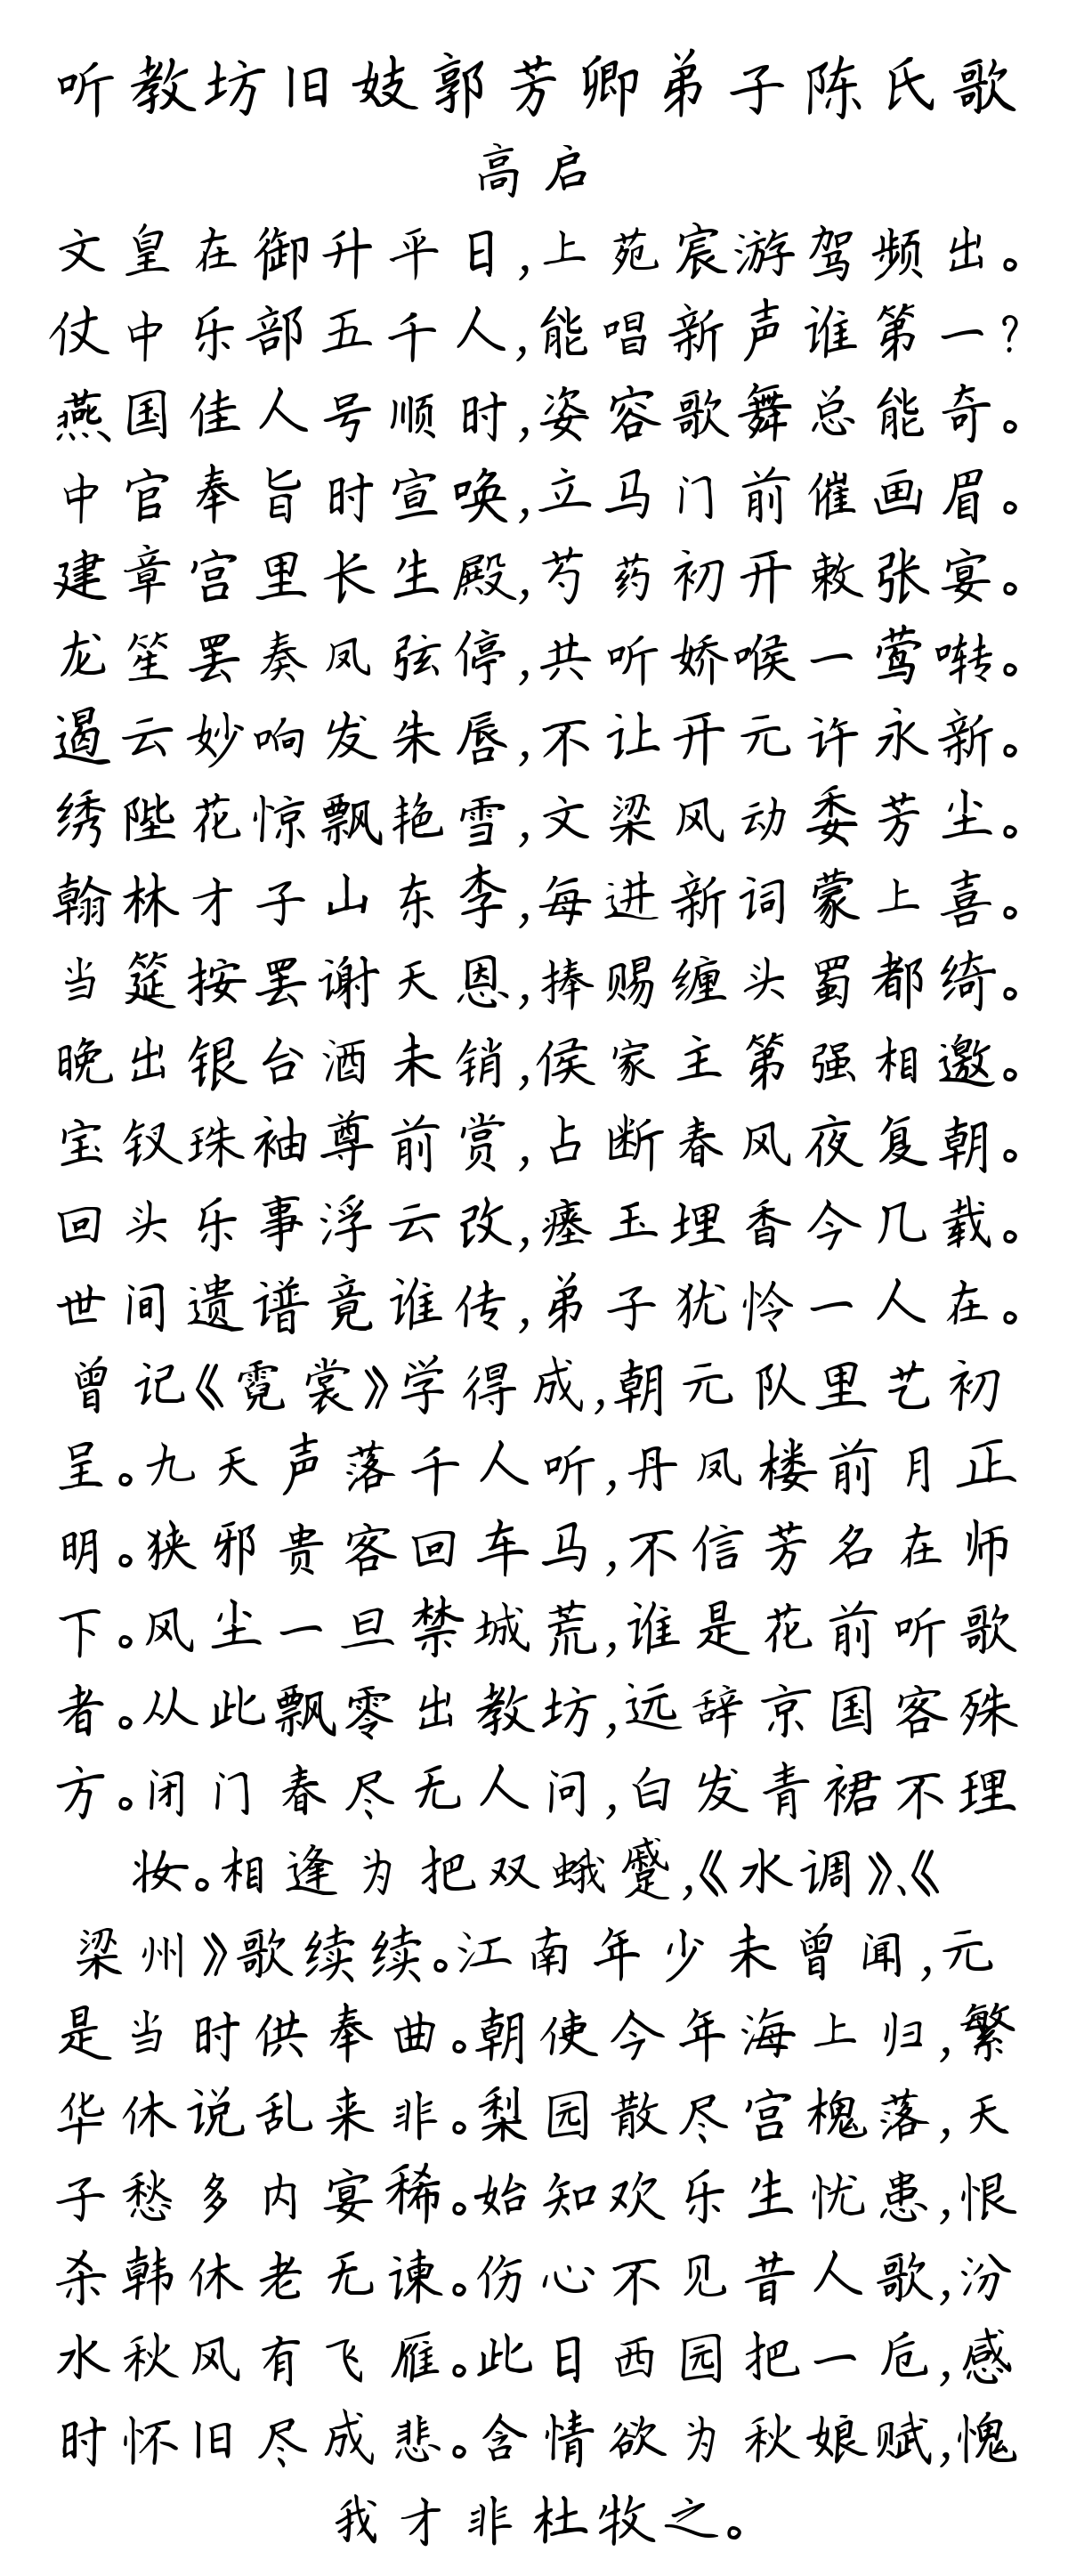 听教坊旧妓郭芳卿弟子陈氏歌
高启
文皇在御升平日,上苑宸游驾频出。
仗中乐部五千人,能唱新声谁第一?
燕国佳人号顺时,姿容歌舞总能奇。
中官奉旨时宣唤,立马门前催画眉。
建章宫里长生殿,芍药初开敕张宴。
龙笙罢奏凤弦停,共听娇喉一莺啭。
遏云妙响发朱唇,不让开元许永新。
绣陛花惊飘艳雪,文梁风动委芳尘。
翰林才子山东李,每进新词蒙上喜。
当筵按罢谢天恩,捧赐缠头蜀都绮。
晚出银台酒未销,侯家主第强相邀。
宝钗珠袖尊前赏,占断春风夜复朝。
回头乐事浮云改,瘗玉埋香今几载。
世间遗谱竟谁传,弟子犹怜一人在。
曾记《霓裳》学得成,朝元队里艺初
呈。九天声落千人听,丹凤楼前月正
明。狭邪贵客回车马,不信芳名在师
下。风尘一旦禁城荒,谁是花前听歌
者。从此飘零出教坊,远辞京国客殊
方。闭门春尽无人问,白发青裙不理
妆。相逢为把双蛾蹙,《水调》、《
梁州》歌续续。江南年少未曾闻,元
是当时供奉曲。朝使今年海上归,繁
华休说乱来非。梨园散尽宫槐落,天
子愁多内宴稀。始知欢乐生忧患,恨
杀韩休老无谏。伤心不见昔人歌,汾
水秋风有飞雁。此日西园把一卮,感
时怀旧尽成悲。含情欲为秋娘赋,愧
我才非杜牧之。